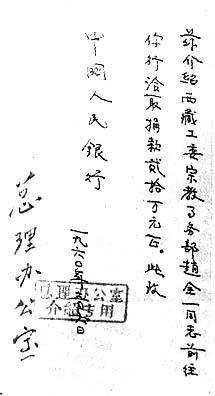 兹介绍西藏工委宗教事务部赵全一同志前往
你行洽取捐款贰拾万元正。此致
中国人民银行
总理办公室
一九六〇年
总理办公室
介绍专用